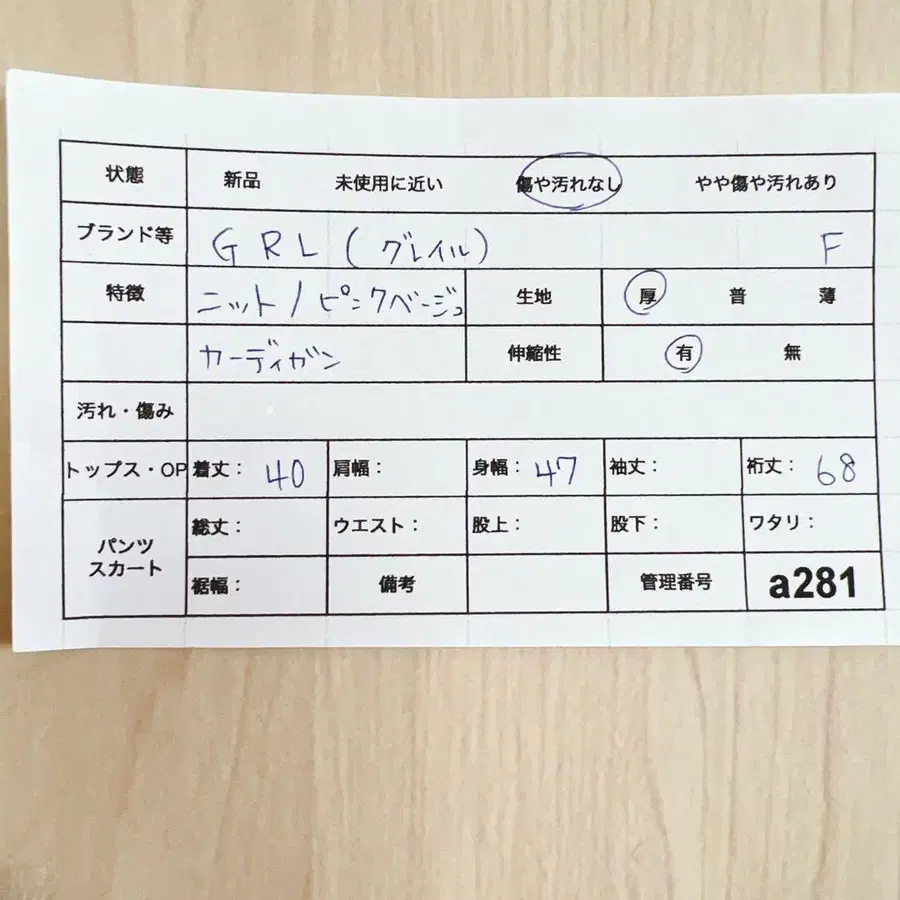 状態 新品 未使用に近い 傷や汚れなし やや傷や汚れあり
ブランド等 GRL (グレイル) F
特徴 ニット/ピンクベージュ 生地 厚 普 薄
カーディガン 伸縮性 有 無
汚れ・傷み
トップス・OP 着丈: 40 肩幅: 身幅: 47 袖丈: 裄丈: 68
パンツ スカート 総丈: ウエスト: 股上: 股下: ワタリ:
裾幅: 備考 管理番号 a281